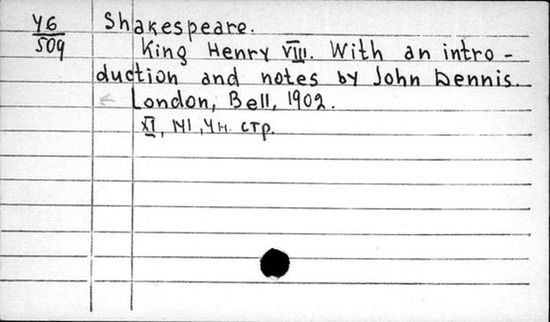 У6
509
Shakespeare.
King Henry VIII. With an intro-
duction and notes by John Dennis.
London, Bell, 1902.
XI, 141, 4 н. стр.